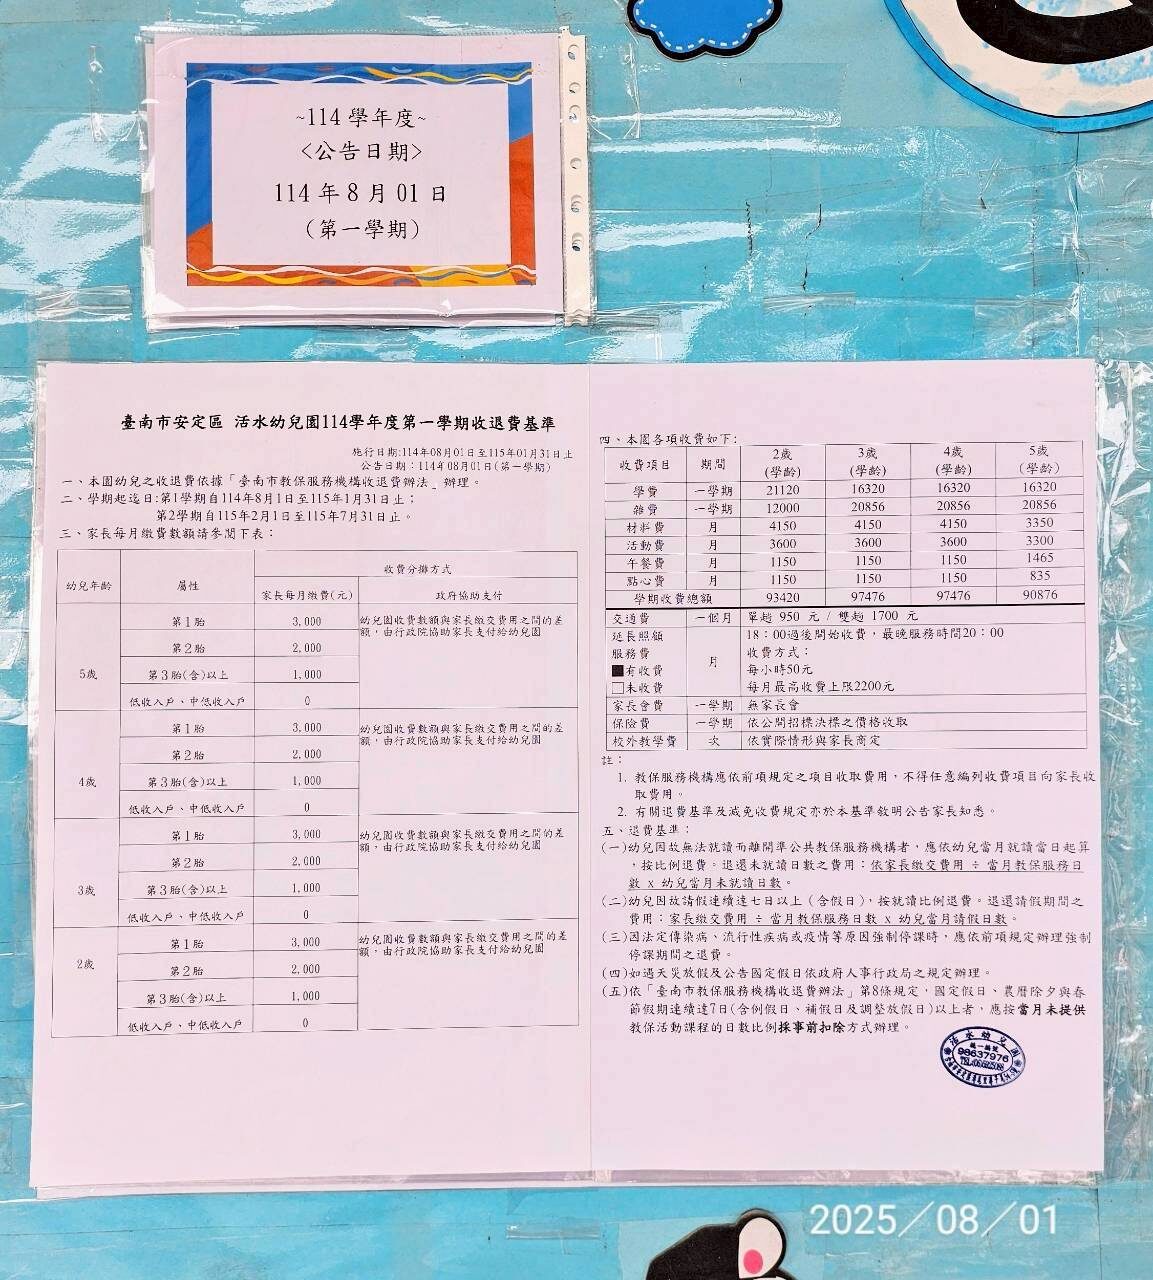 ~114 學年度~
<公告日期>
114 年 8 月 01 日
(第一學期)
臺南市安定區 活水幼兒園114學年度第一學期收退費基準
施行日期:114年08月01日至115年01月31日止
公告日期:114年08月01日(第一學期)
一、本園幼兒之收退費依據「臺南市教保服務機構收退費辦法」辦理。
二、學期起迄日:第1學期自114年8月1日至115年1月31日止;
第2學期自115年2月1日至115年7月31日止。
三、家長每月繳費數額請參閱下表:
幼兒年齡 屬性 收費分攤方式
家長每月繳費(元) 政府協助支付
5歲 第1胎 3,000 幼兒園收費數額與家長繳交費用之間的差
額,由行政院協助家長支付給幼兒園
第2胎 2,000
第3胎(含)以上 1,000
低收入戶、中低收入戶 0
4歲 第1胎 3,000 幼兒園收費數額與家長繳交費用之間的差
額,由行政院協助家長支付給幼兒園
第2胎 2,000
第3胎(含)以上 1,000
低收入戶、中低收入戶 0
3歲 第1胎 3,000 幼兒園收費數額與家長繳交費用之間的差
額,由行政院協助家長支付給幼兒園
第2胎 2,000
第3胎(含)以上 1,000
低收入戶、中低收入戶 0
2歲 第1胎 3,000 幼兒園收費數額與家長繳交費用之間的差
額,由行政院協助家長支付給幼兒園
第2胎 2,000
第3胎(含)以上 1,000
低收入戶、中低收入戶 0
四、本園各項收費如下:
收費項目 期間 2歲(學齡) 3歲(學齡) 4歲(學齡) 5歲(學齡)
學費 一學期 21120 16320 16320 16320
雜費 一學期 12000 20856 20856 20856
材料費 月 4150 4150 4150 3350
活動費 月 3600 3600 3600 3300
午餐費 月 1150 1150 1150 1465
點心費 月 1150 1150 1150 835
學期收費總額 93420 97476 97476 90876
交通費 一個月 單趟 950 元 / 雙趟 1700 元
延長照顧 18:00過後開始收費,最晚服務時間20:00
服務費 月 收費方式:
■有收費 每小時50元
□未收費 每月最高收費上限2200元
家長會費 一學期 無家長會
保險費 一學期 依公開招標決標之價格收取
校外教學費 次 依實際情形與家長商定
註:
1. 教保服務機構應依前項規定之項目收取費用,不得任意編列收費項目向家長收
取費用。
2. 有關退費基準及減免收費規定亦於本基準敘明公告家長知悉。
五、退費基準:
(一)幼兒因故無法就讀而離開準公共教保服務機構者,應依幼兒當月就讀當日起算
,按比例退費。退還未就讀日數之費用:依家長繳交費用 ÷ 當月教保服務日
數 x 幼兒當月未就讀日數。
(二)幼兒因故請假連續達七日以上(含假日),按就讀比例退費。退還請假期間之
費用:家長繳交費用 ÷ 當月教保服務日數 x 幼兒當月請假日數。
(三)因法定傳染病、流行性疾病或疫情等原因強制停課時,應依前項規定辦理強制
停課期間之退費。
(四)如遇天災放假及公告國定假日依政府人事行政局之規定辦理。
(五)依「臺南市教保服務機構收退費辦法」第8條規定,國定假日、農曆除夕與春
節假期連續達7日(含例假日、補假日及調整放假日)以上者,應按當月未提供
教保活動課程的日數比例採事前扣除方式辦理。
活水幼兒園
統一編號
98637976
2025/08/01